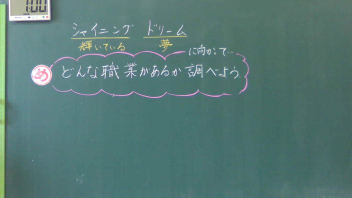 1:00
シャイニング ドリーム
輝いている 夢
に向かって…
め どんな職業があるか調べよう